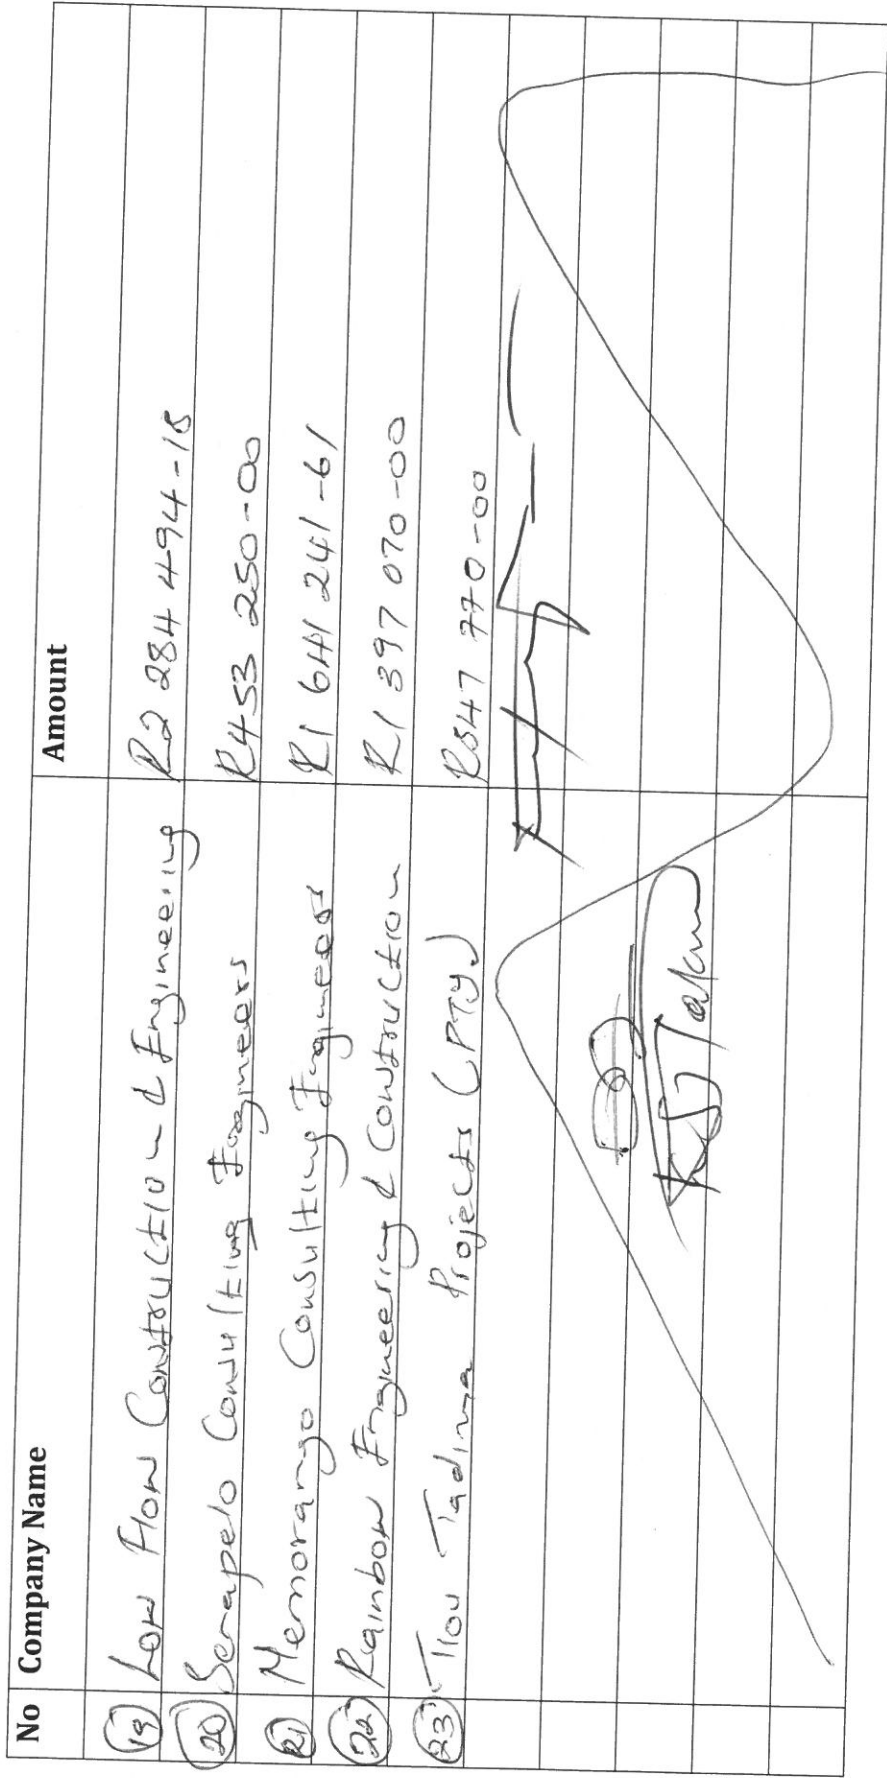 No Company Name Amount
19 Low Flow Construction & Engineering R2 284 494-18
20 Serapelo Consulting Engineers R453 250-00
21 Memorango Consulting Engineers R1 641 241-61
22 Rainbow Engineering & Construction R1 397 070-00
23 Tlou Tadima Projects (PTY) R547 770-00